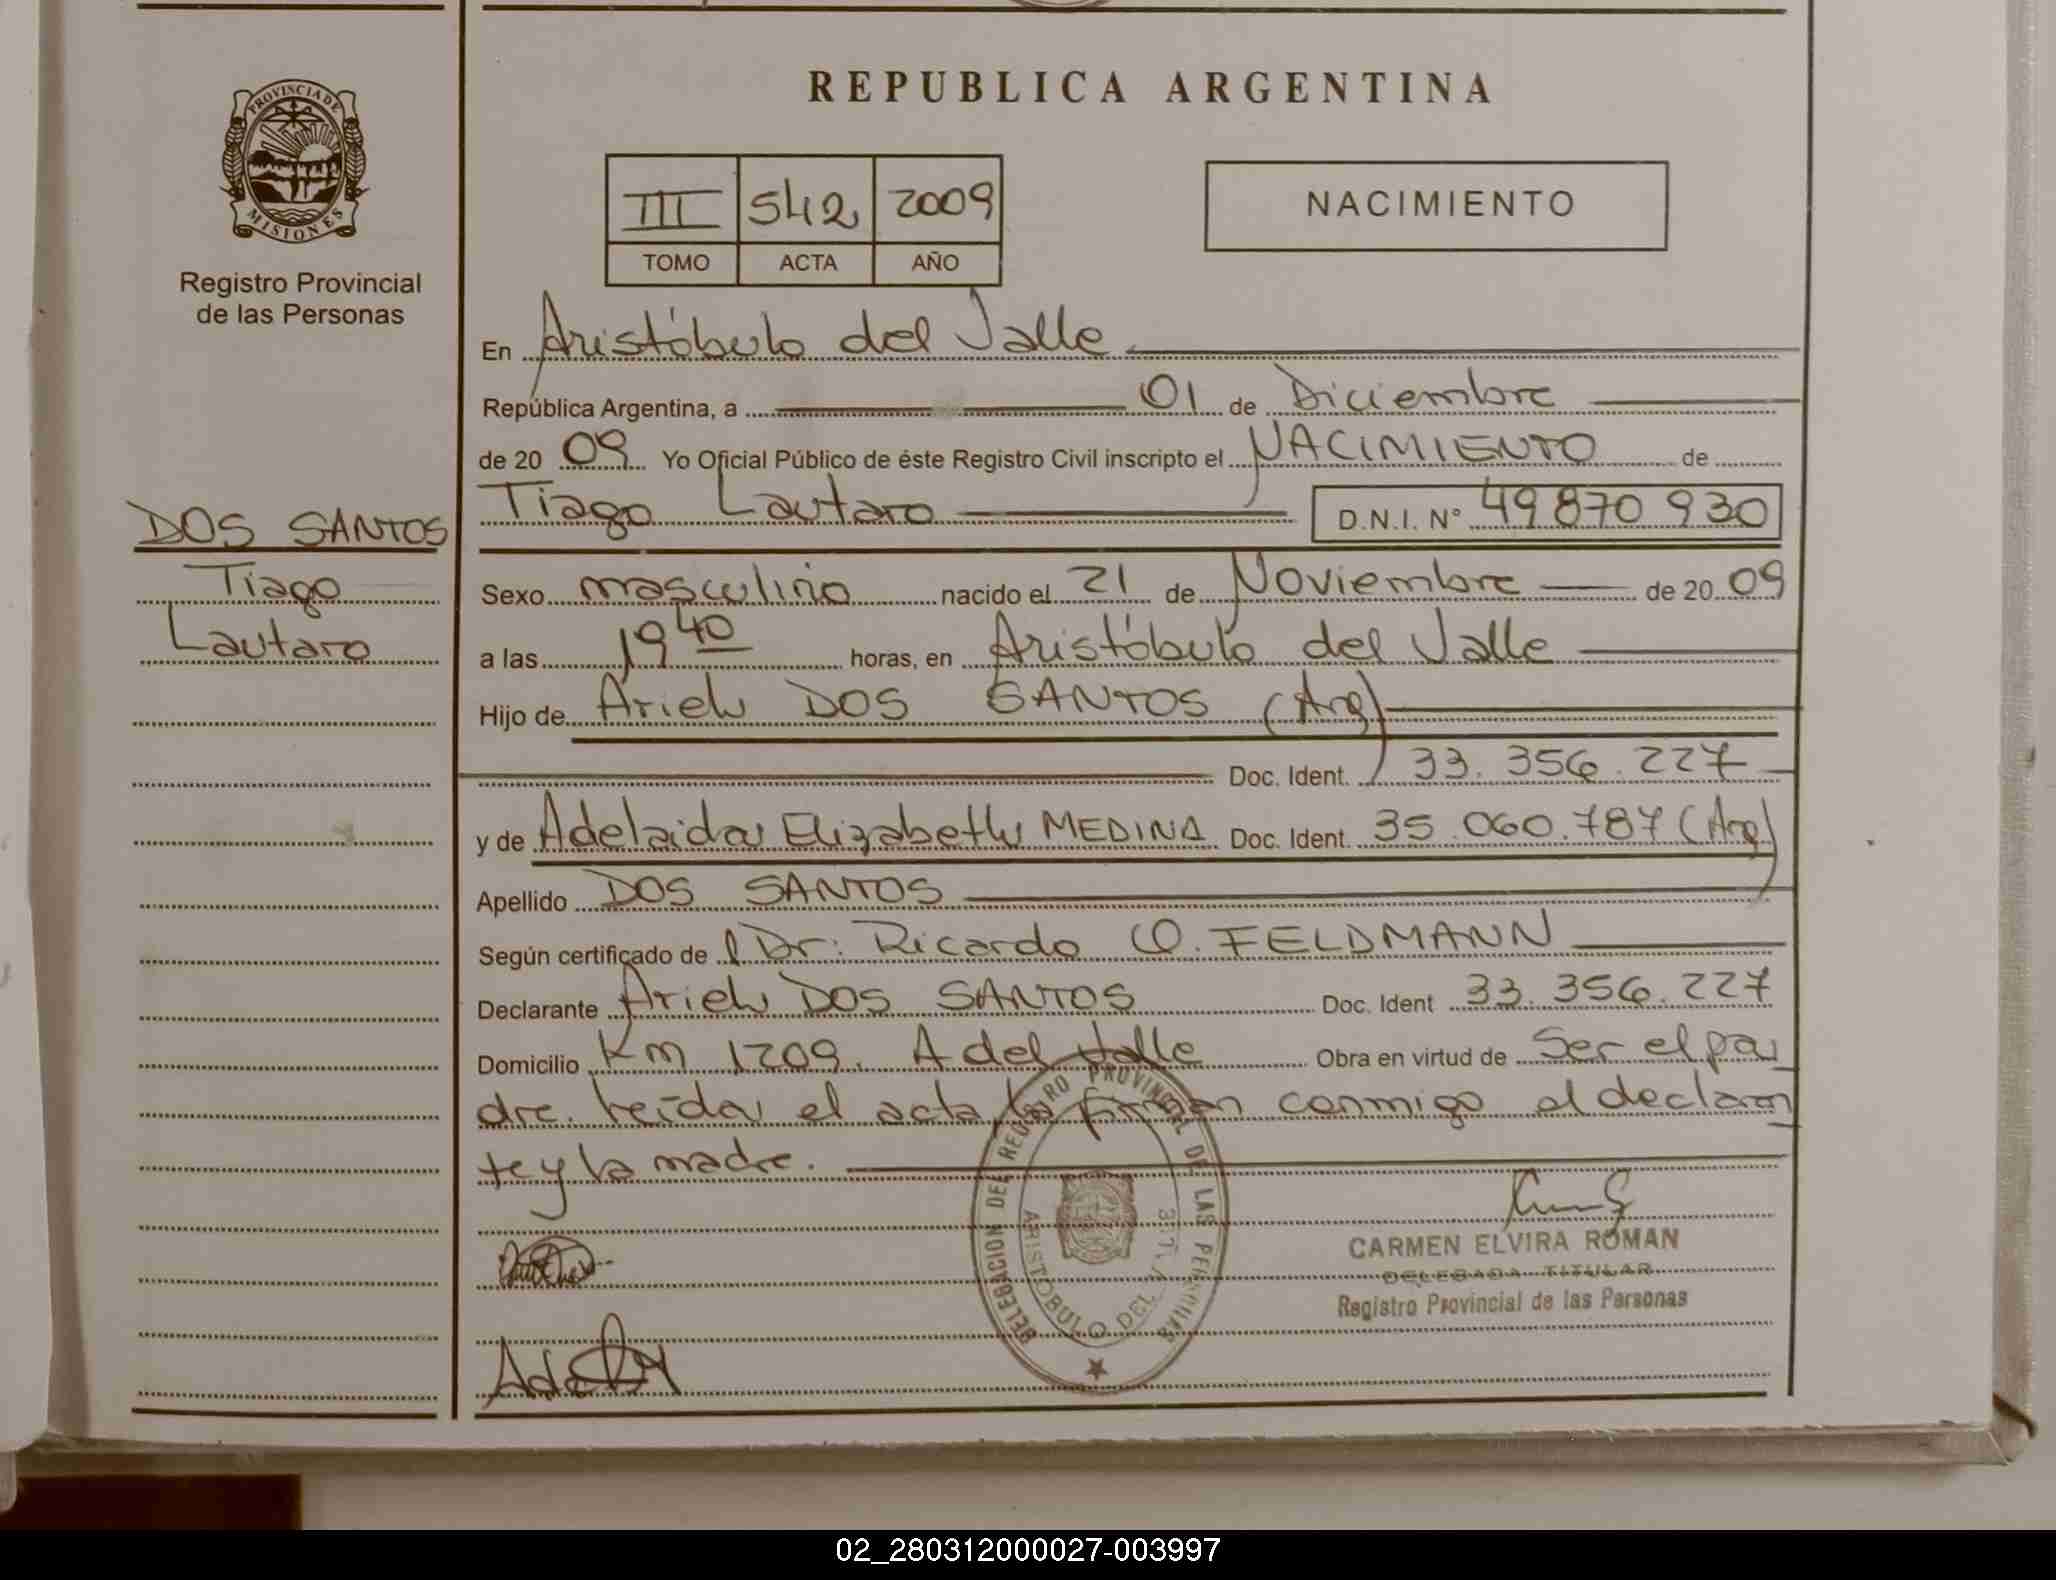 REPUBLICA ARGENTINA
PROVINCIA DE
MISIONES
Registro Provincial
de las Personas
III 542 2009
TOMO ACTA AÑO
NACIMIENTO
En Aristóbulo del Valle
República Argentina, a 01 de Diciembre
de 20 09 Yo Oficial Público de éste Registro Civil inscripto el NACIMIENTO de
Tiago Lautaro D.N.I. N° 49 870 930
DOS SANTOS
Tiago
Lautaro
Sexo masculino nacido el 21 de Noviembre de 20 09
a las 19 40 horas, en Aristóbulo del Valle
Hijo de Ariel DOS SANTOS (Arg)
Doc. Ident. 33.356.227
y de Adelaida Elizabeth MEDINA Doc. Ident. 35.060.787 (Arg)
Apellido DOS SANTOS
Según certificado de l Dr: Ricardo O. FELDMANN
Declarante Ariel DOS SANTOS Doc. Ident 33.356.227
Domicilio Km 1209. A del Valle Obra en virtud de Ser el pa
dre. Leída el acta la firman conmigo el declaran
te y la madre.
DELEGACION DEL REGISTRO PROVINCIAL DE LAS PERSONAS
ARISTOBULO DEL VALLE
CARMEN ELVIRA ROMAN
DELEGADA TITULAR
Registro Provincial de las Personas
02_280312000027-003997